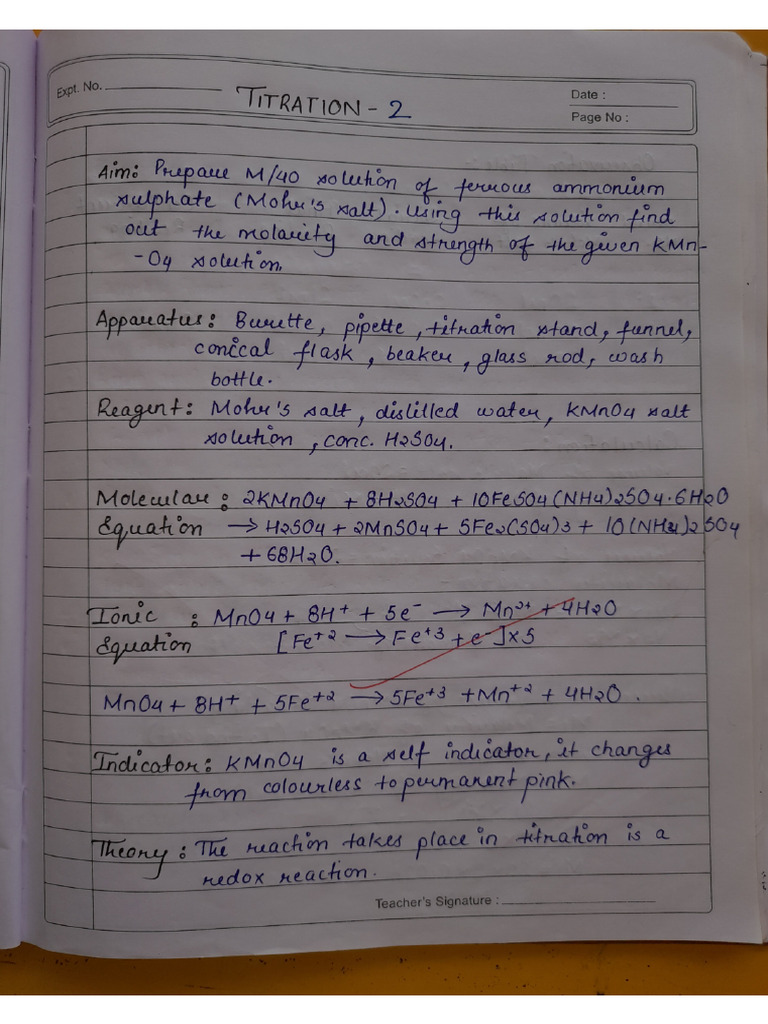 Expt. No.
TITRATION - 2
Date :
Page No :
Aim: Prepare M/40 solution of ferrous ammonium
sulphate (Mohr's salt). Using this solution find
out the molarity and strength of the given KMn-
-O4 solution.
Apparatus: Burette, pipette, titration stand, funnel,
conical flask, beaker, glass rod, wash
bottle.
Reagent: Mohr's salt, distilled water, KMnO4 salt
solution, conc. H2SO4.
Molecular : 2KMnO4 + 8H2SO4 + 10FeSO4(NH4)2SO4·6H2O
Equation → H2SO4 + 2MnSO4 + 5Fe2(SO4)3 + 10(NH4)2SO4
+ 68H2O.
Ionic : MnO4 + 8H+ + 5e- → Mn2+ + 4H2O
Equation [Fe+2 → Fe+3 + e-]x5
MnO4 + 8H+ + 5Fe+2 → 5Fe+3 + Mn+2 + 4H2O.
Indicator: KMnO4 is a self indicator, it changes
from colourless to permanent pink.
Theory: The reaction takes place in titration is a
redox reaction.
Teacher's Signature :